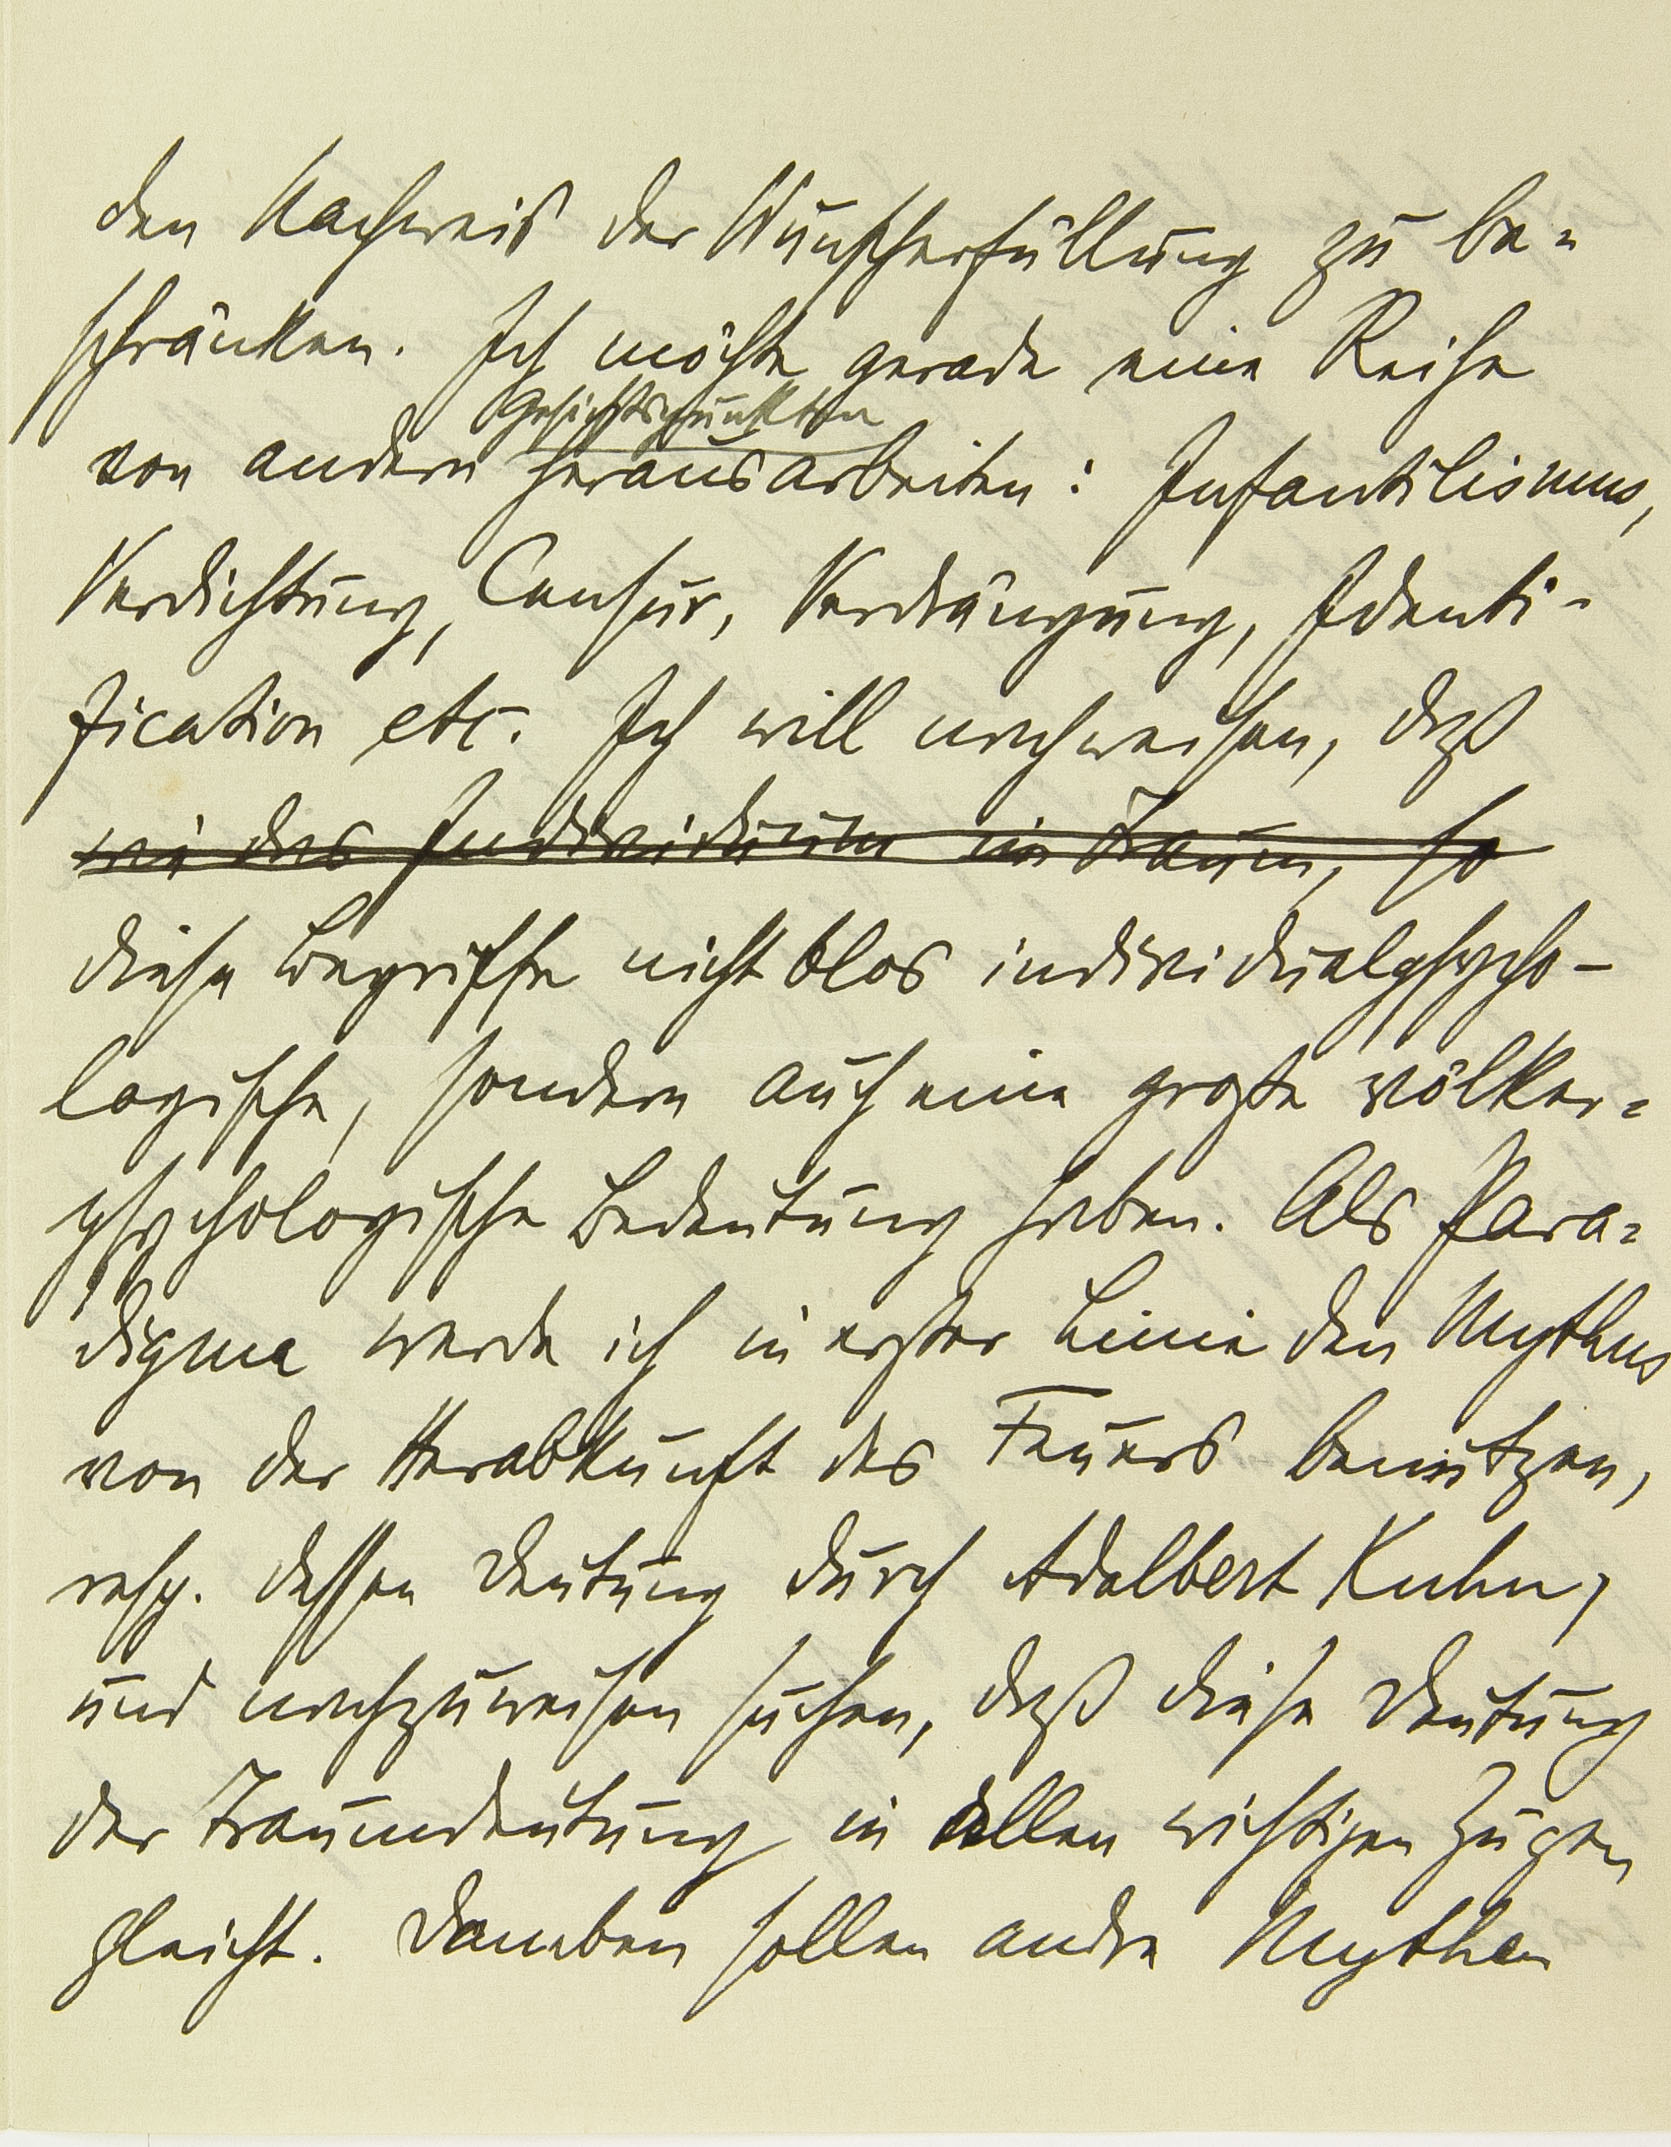 den Nachweis der Wunscherfüllung zu be-
schränken. Ich möchte gerade eine Reihe
Gesichtspunkten
von andern herausarbeiten: Infantilismus,
Verdichtung, Censur, Verdrängung, Identi-
fication etc. Ich will nachweisen, daß
wie das Individuum im Traum, so
diese Begriffe nicht blos individualpsycho-
logische, sondern auch eine große völker-
psychologische Bedeutung haben. Als Para-
digma werde ich in erster Linie den Mythus
von der Herabkunft des Feuers benützen,
resp. dessen Deutung durch Adalbert Kuhn,
und nachzuweisen suchen, daß diese Deutung
der Traumdeutung in allen wichtigen Zügen
gleicht. Daneben sollen andre Mythen